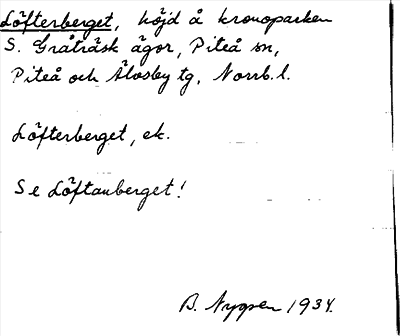 Löfterberget, höjd å kronoparken
S. Gråträsk ägor, Piteå sn,
Piteå och Älvsby tg, Norrb. l.
Löfterberget, ek.
Se Löftanberget!
B. Nygren 1934.